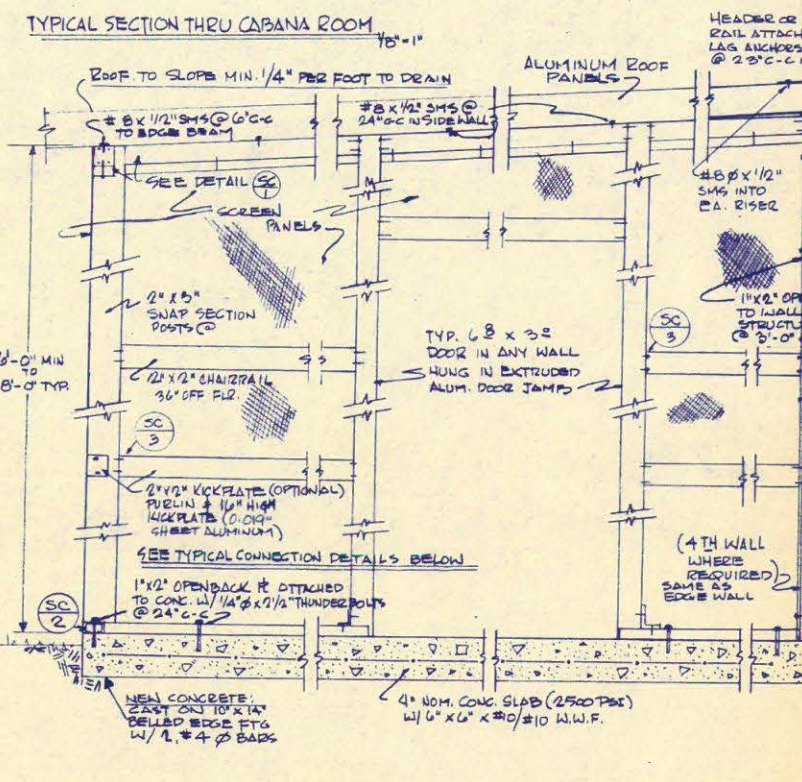 TYPICAL SECTION THRU CABANA ROOM
1/8"=1"
HEADER OR
RAIL ATTACH
LAG ANCHORS
@ 23"C-C
ROOF TO SLOPE MIN. 1/4" PER FOOT TO DRAIN
ALUMINUM ROOF
PANELS
#8 x 1/2" SMS @ 6"C-C
TO EDGE BEAM
#8 x 1/2" SMS @
24"C-C IN SIDE WALL
SEE DETAIL SC
1
SCREEN
PANELS
#8 Ø x 1/2"
SMS INTO
EA. RISER
2" x 3"
SNAP SECTION
POSTS @
1"x2" OP
TO WALL
STRUCTU
@ 3'-0"
SC
3
TYP. 6 8 x 3 0
DOOR IN ANY WALL
HUNG IN EXTRUDED
ALUM. DOOR JAMBS
6'-0" MIN
TO
8'-0" TYP.
2"x2" CHAIRRAIL
36" OFF FLR.
SC
3
2"x2" KICKPLATE (OPTIONAL)
PURLIN & 16" HIGH
KICKPLATE (0.019"
SHEET ALUMINUM)
SEE TYPICAL CONNECTION DETAILS BELOW
(4TH WALL
WHERE
REQUIRED)
SAME AS
EDGE WALL
1"x2" OPENBACK ATTACHED
TO CONC. W/ 1/4"Ø x 2 1/2" THUNDERBOLTS
@ 24" C-C
SC
2
NEW CONCRETE:
CAST ON 10" x 14"
BELLED EDGE FTG
W/ 2, #4 Ø BARS
4" NOM. CONC. SLAB (2500 PSI)
W/ 6" x 6" x #10/#10 W.W.F.